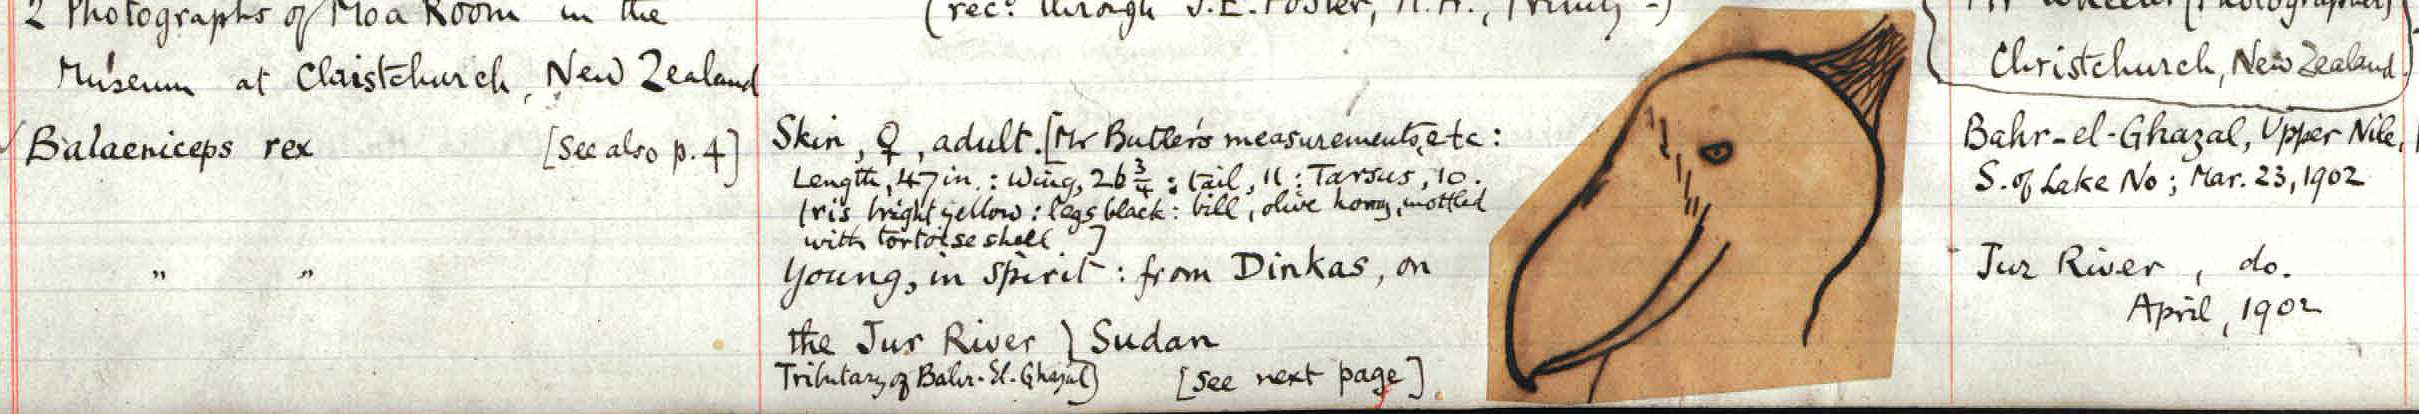 2 Photographs of Moa Room in the
Museum at Christchurch, New Zealand
(rec? through J.E. Foster, M.A., Trinity -)
Christchurch, New Zealand.
Balaeniceps rex [See also p. 4]
Skin, ♀, adult. [Mr Butler's measurements, etc:
Length, 47 in. : Wing, 26 3/4 : tail, 11 : Tarsus, 10.
Iris bright yellow : legs black : bill, olive horny, mottled
with tortoise shell ]
Bahr-el-Ghazal, Upper Nile,
S. of Lake No ; Mar. 23, 1902
" "
Young, in spirit : from Dinkas, on
the Jur River ) Sudan
Tributary of Bahr-El-Ghazal) [see next page].
Jur River, do.
April, 1902